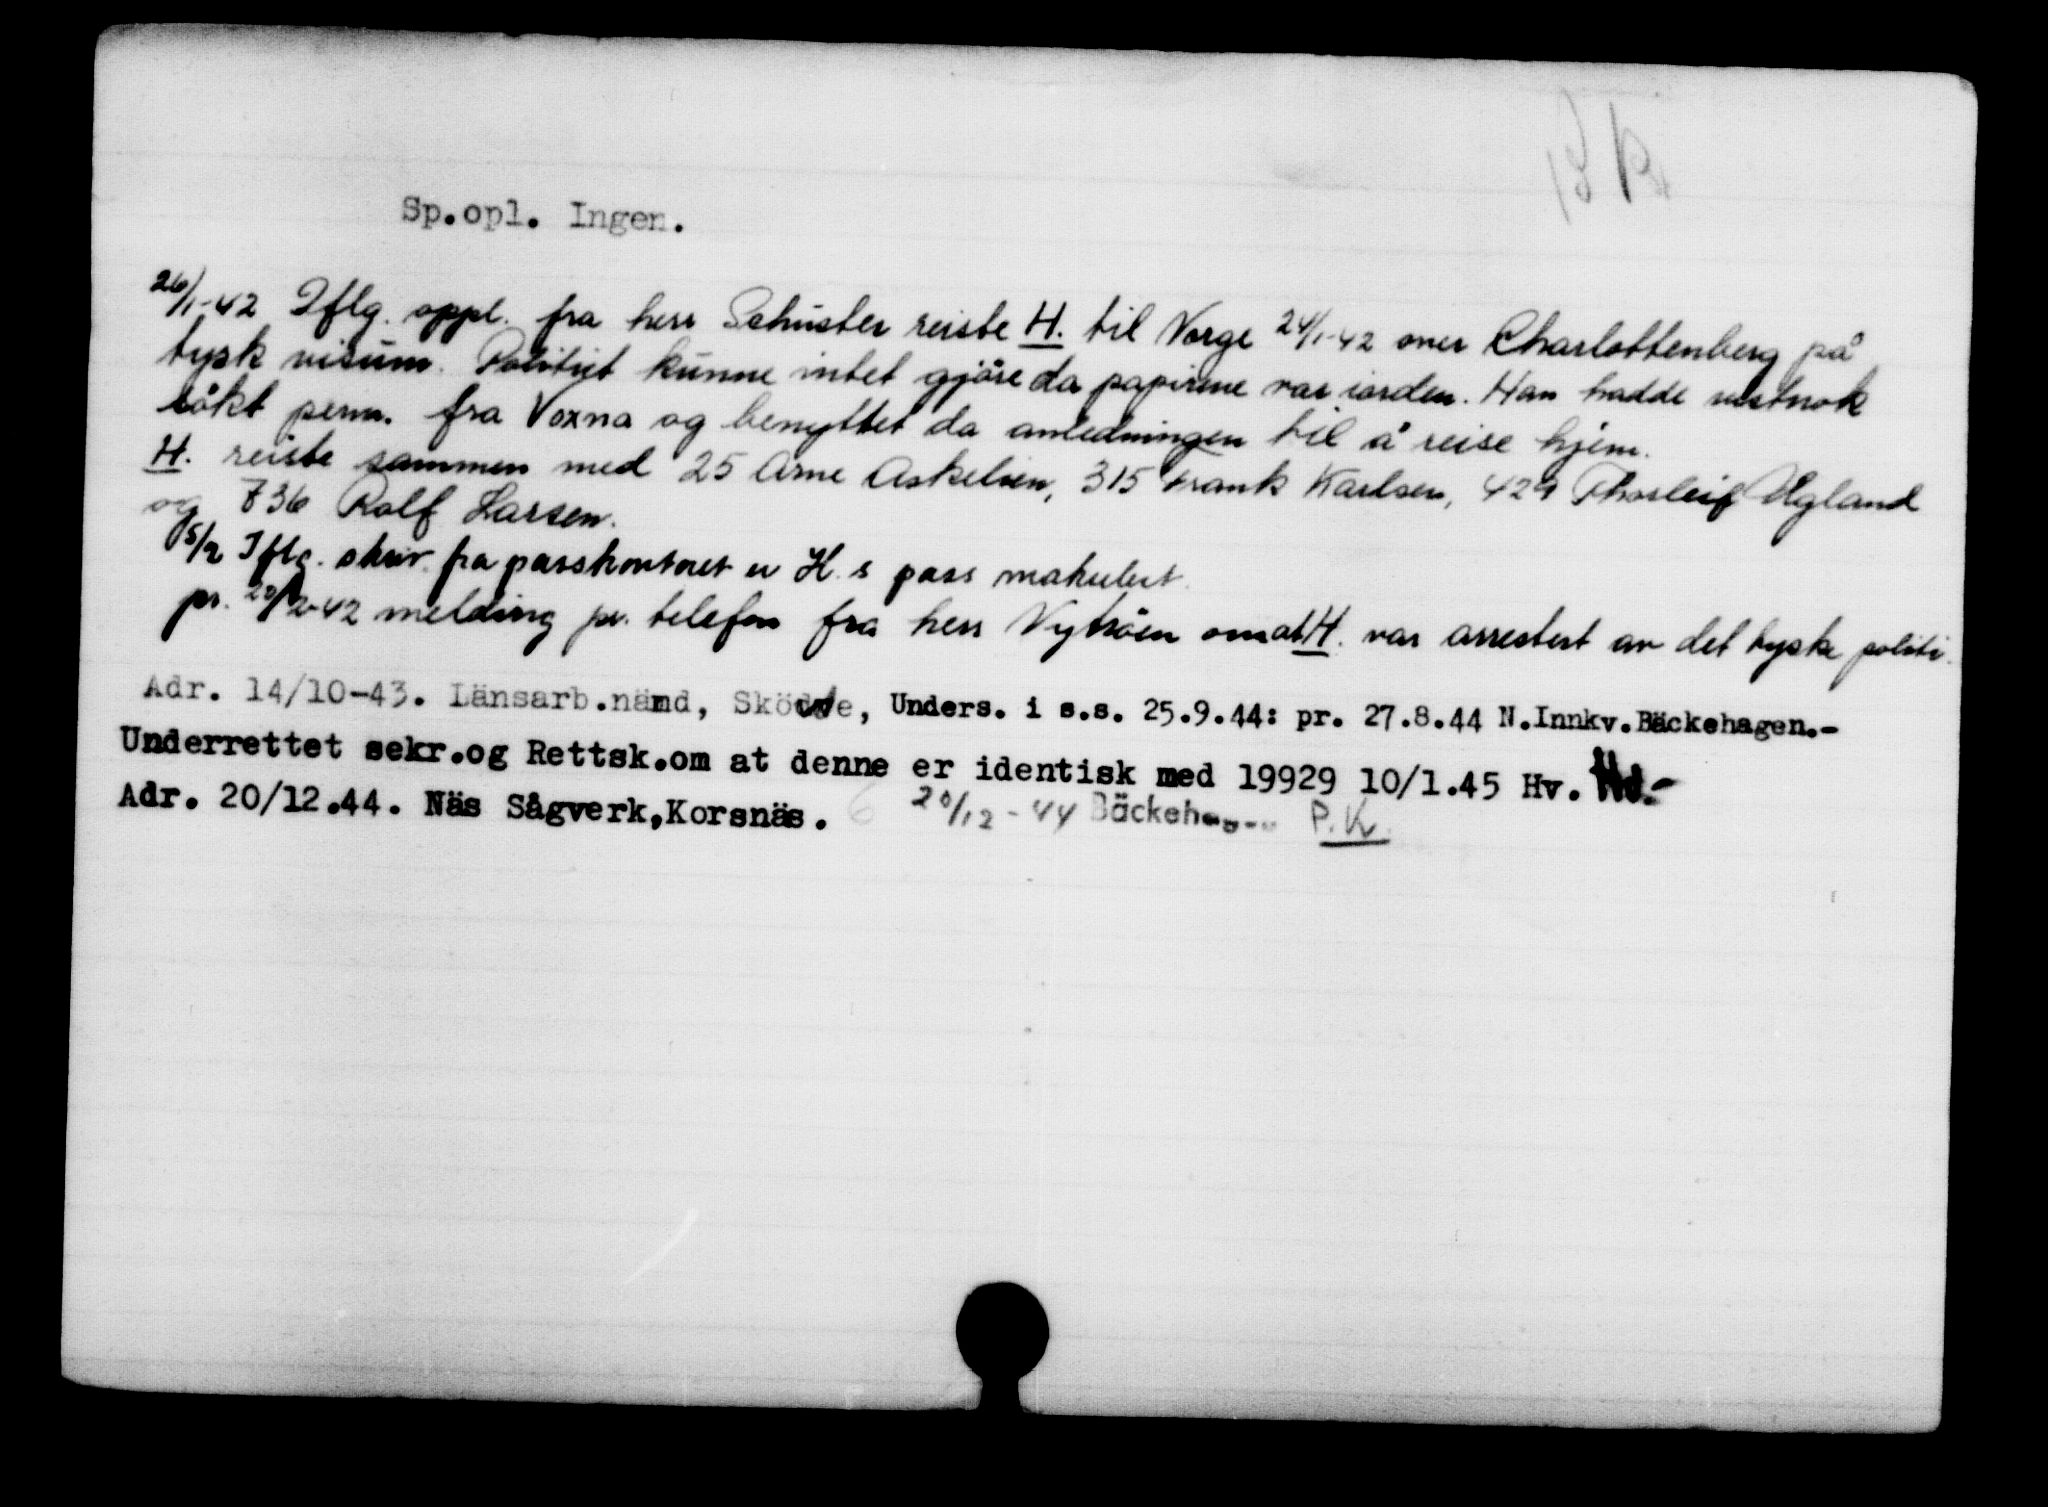 Sp.opl. Ingen.
26/1-42 Iflg. oppl. fra herr Schuster reiste H. til Norge 24/1-42 over Charlottenberg på
tysk visum. Politiet kunne intet gjöre da papirene var iorden. Han hadde vistnok
sökt perm. fra Voxna og benyttet da anledningen til å reise hjem.
H. reiste sammen med 25 Arne Askelsen, 315 Frank Karlsen, 429 Thorleif Ugland
og 736 Rolf Larsen.
5/2 Iflg. skriv. fra passkontoret er H.s pass makulert.
pr. 20/2-42 melding pr. telefon fra herr Nytröen om at H. var arrestert av det tyske politi.
Adr. 14/10-43. Länsarb.nämd, Skövde, Unders. i s.s. 25.9.44: pr. 27.8.44 N.Innkv.Bäckehagen.-
Underrettet sekr.og Rettsk.om at denne er identisk med 19929 10/1.45 Hv.
Adr. 20/12.44. Näs Sågverk,Korsnäs. 20/12-44 P.K.